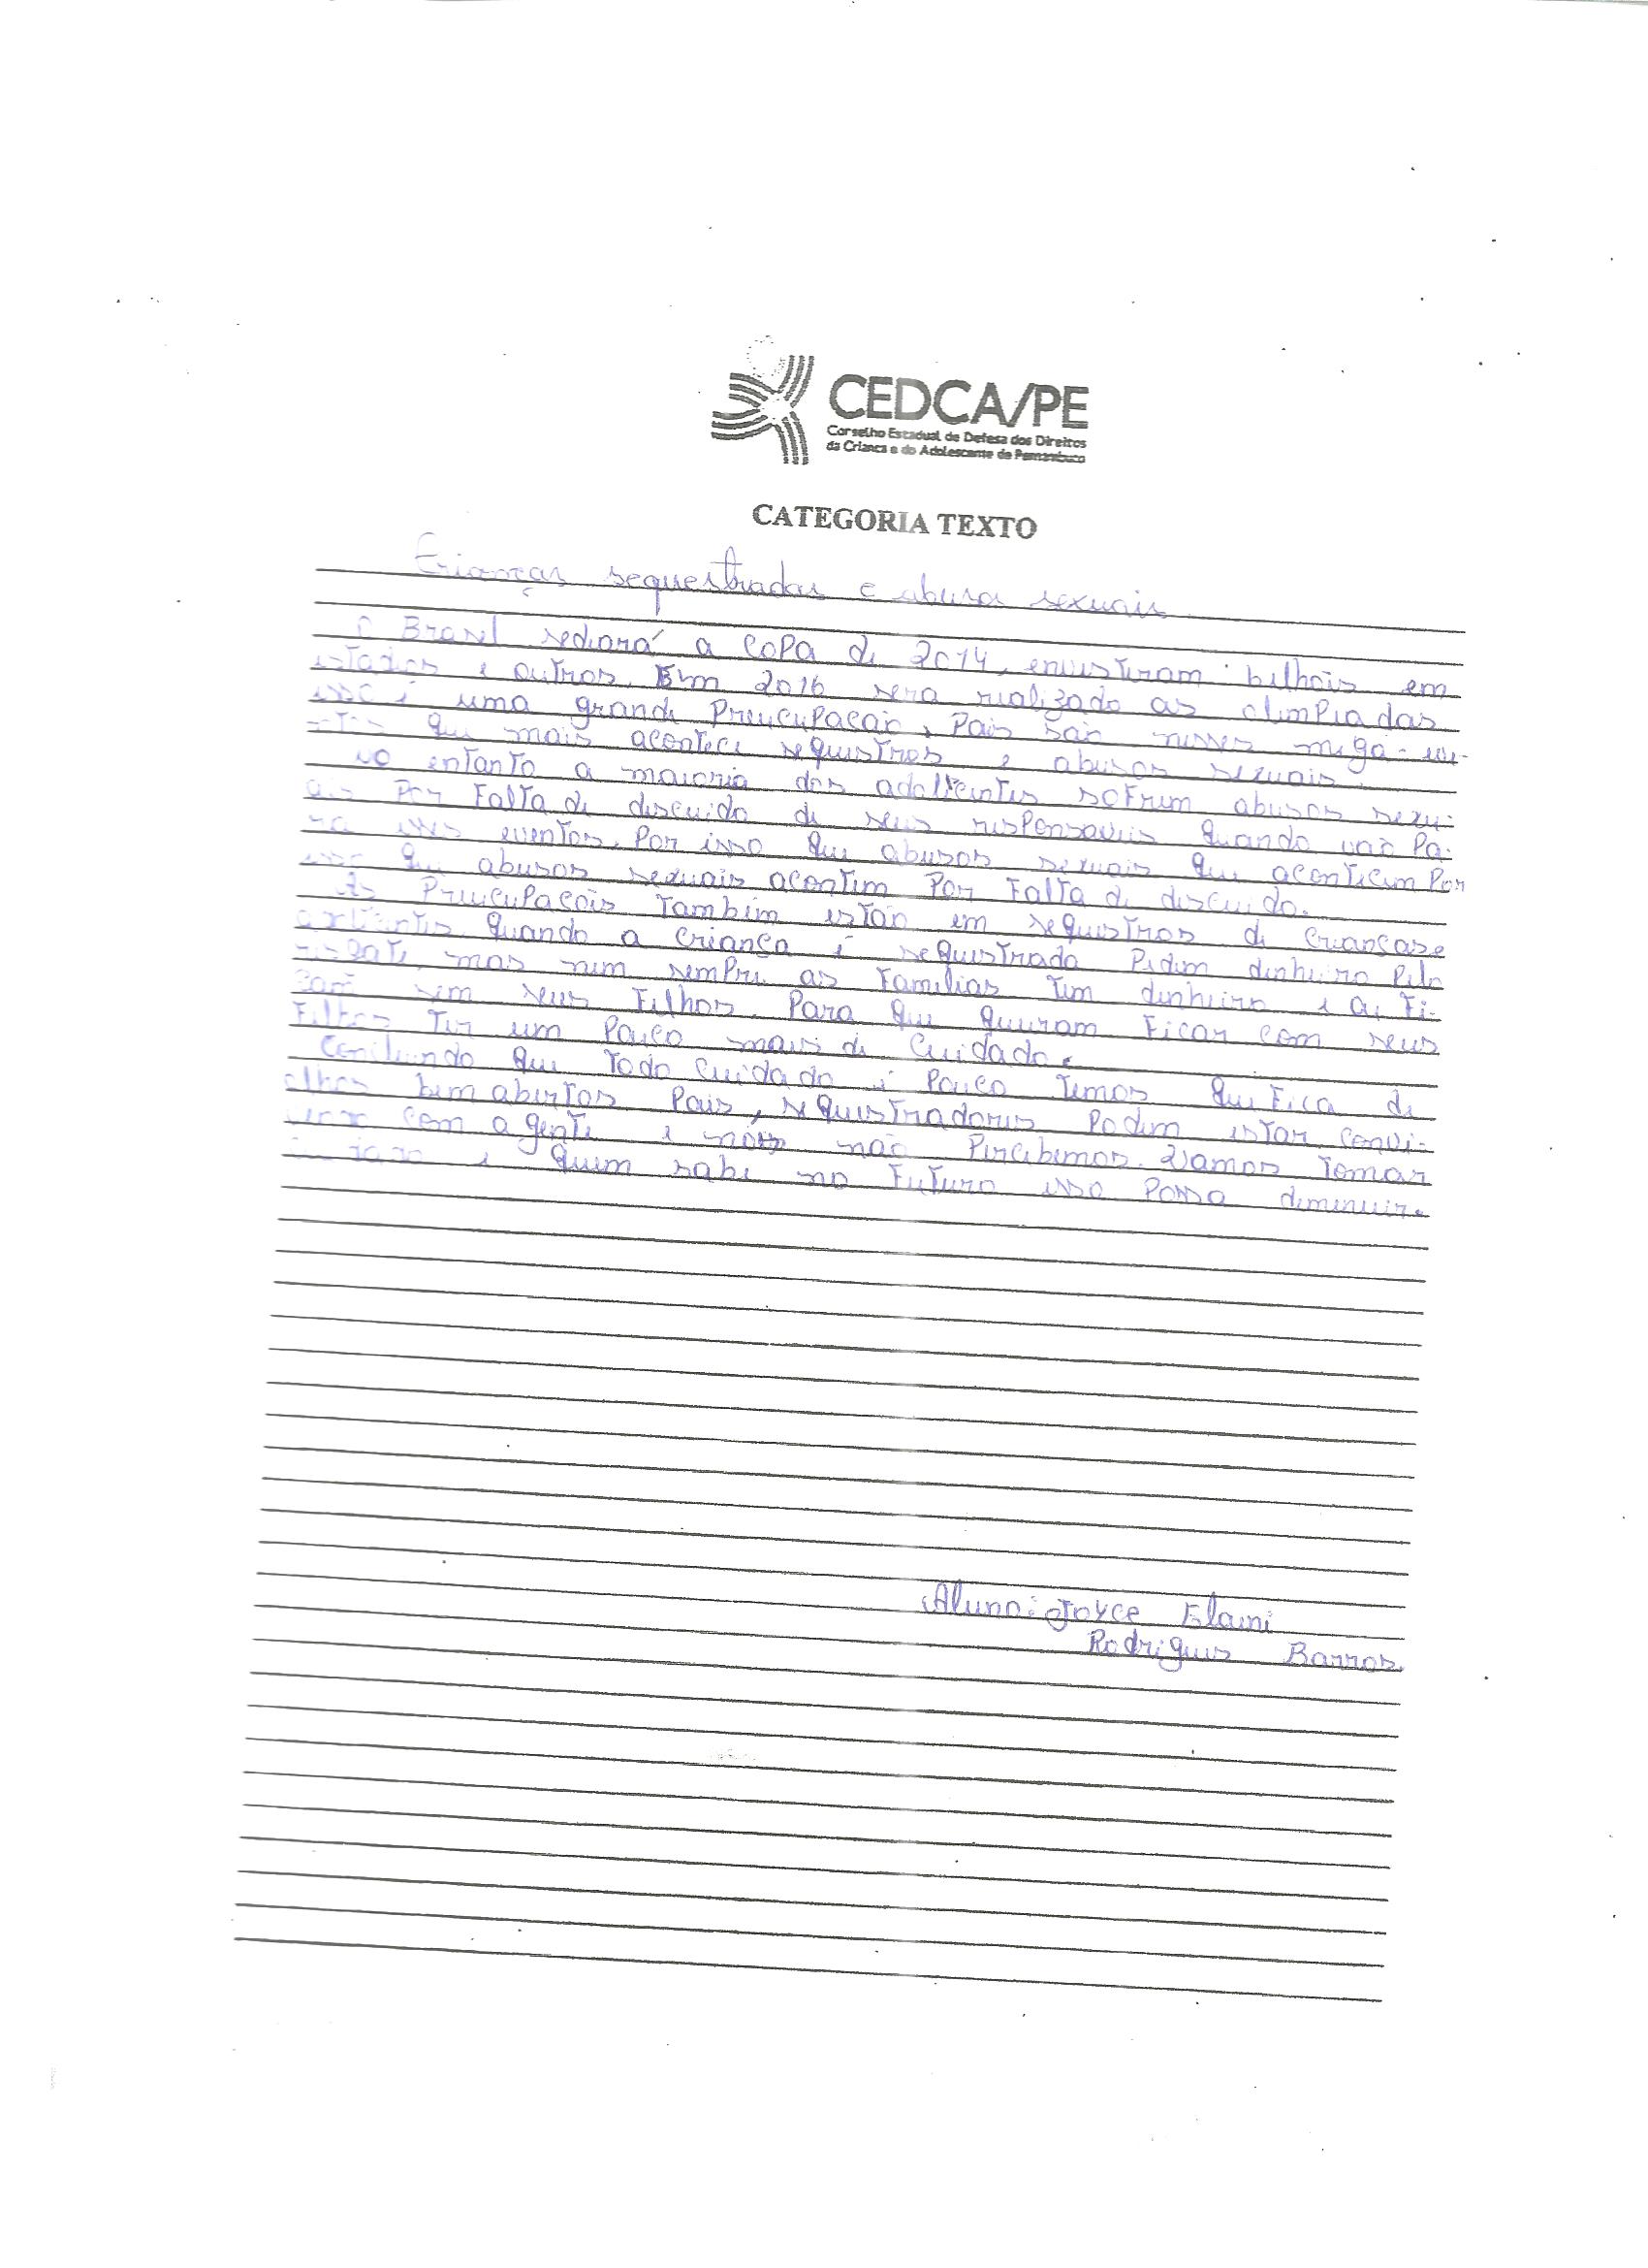 CEDCA/PE
Conselho Estadual de Defesa dos Direitos
da Criança e do Adolescente de Pernambuco
CATEGORIA TEXTO
Crianças sequestradas e abusa sexuais
O Brasil sediará a COPA de 2014, envestiram bilhois em
estadios e outros. Em 2016 sera rializado as olimpiadas
isso é uma grande Preucupação, Pois são nesses mega-eve-
ntos que mais acontece sequestros e abusos sexuais.
No entanto a maioria dos adolecentes sofrem abusos sexu-
ais Por Falta de descuido de seus responsaveis quando vão Pa-
ra eventos, Por isso que abusos sexuais que acontecem Por
isso que abusos sexuais acontem Por Falta de descuido.
As Preucupaçois Também estão em sequestros de crianças e
quando a criança é sequestrada Pedem dinheiro Pelo
resgate, mas nem sempre as Familias tem dinheiro e ai Fi-
cam sem seus Filhos. Para que queiram Ficar com seus
Filhos Ter um Pouco mais de Cuidado.
Concluindo que Todo cuidado é Pouco temos que Fica de
olhos bem abertos Pois, sequestradores Podem estar convi-
com agente e nós não Percebemos. Vamos Tomar
e quem sabe no Futuro isso Possa diminuir.
Aluno: Joyce Elaini
Rodrigues Barros.